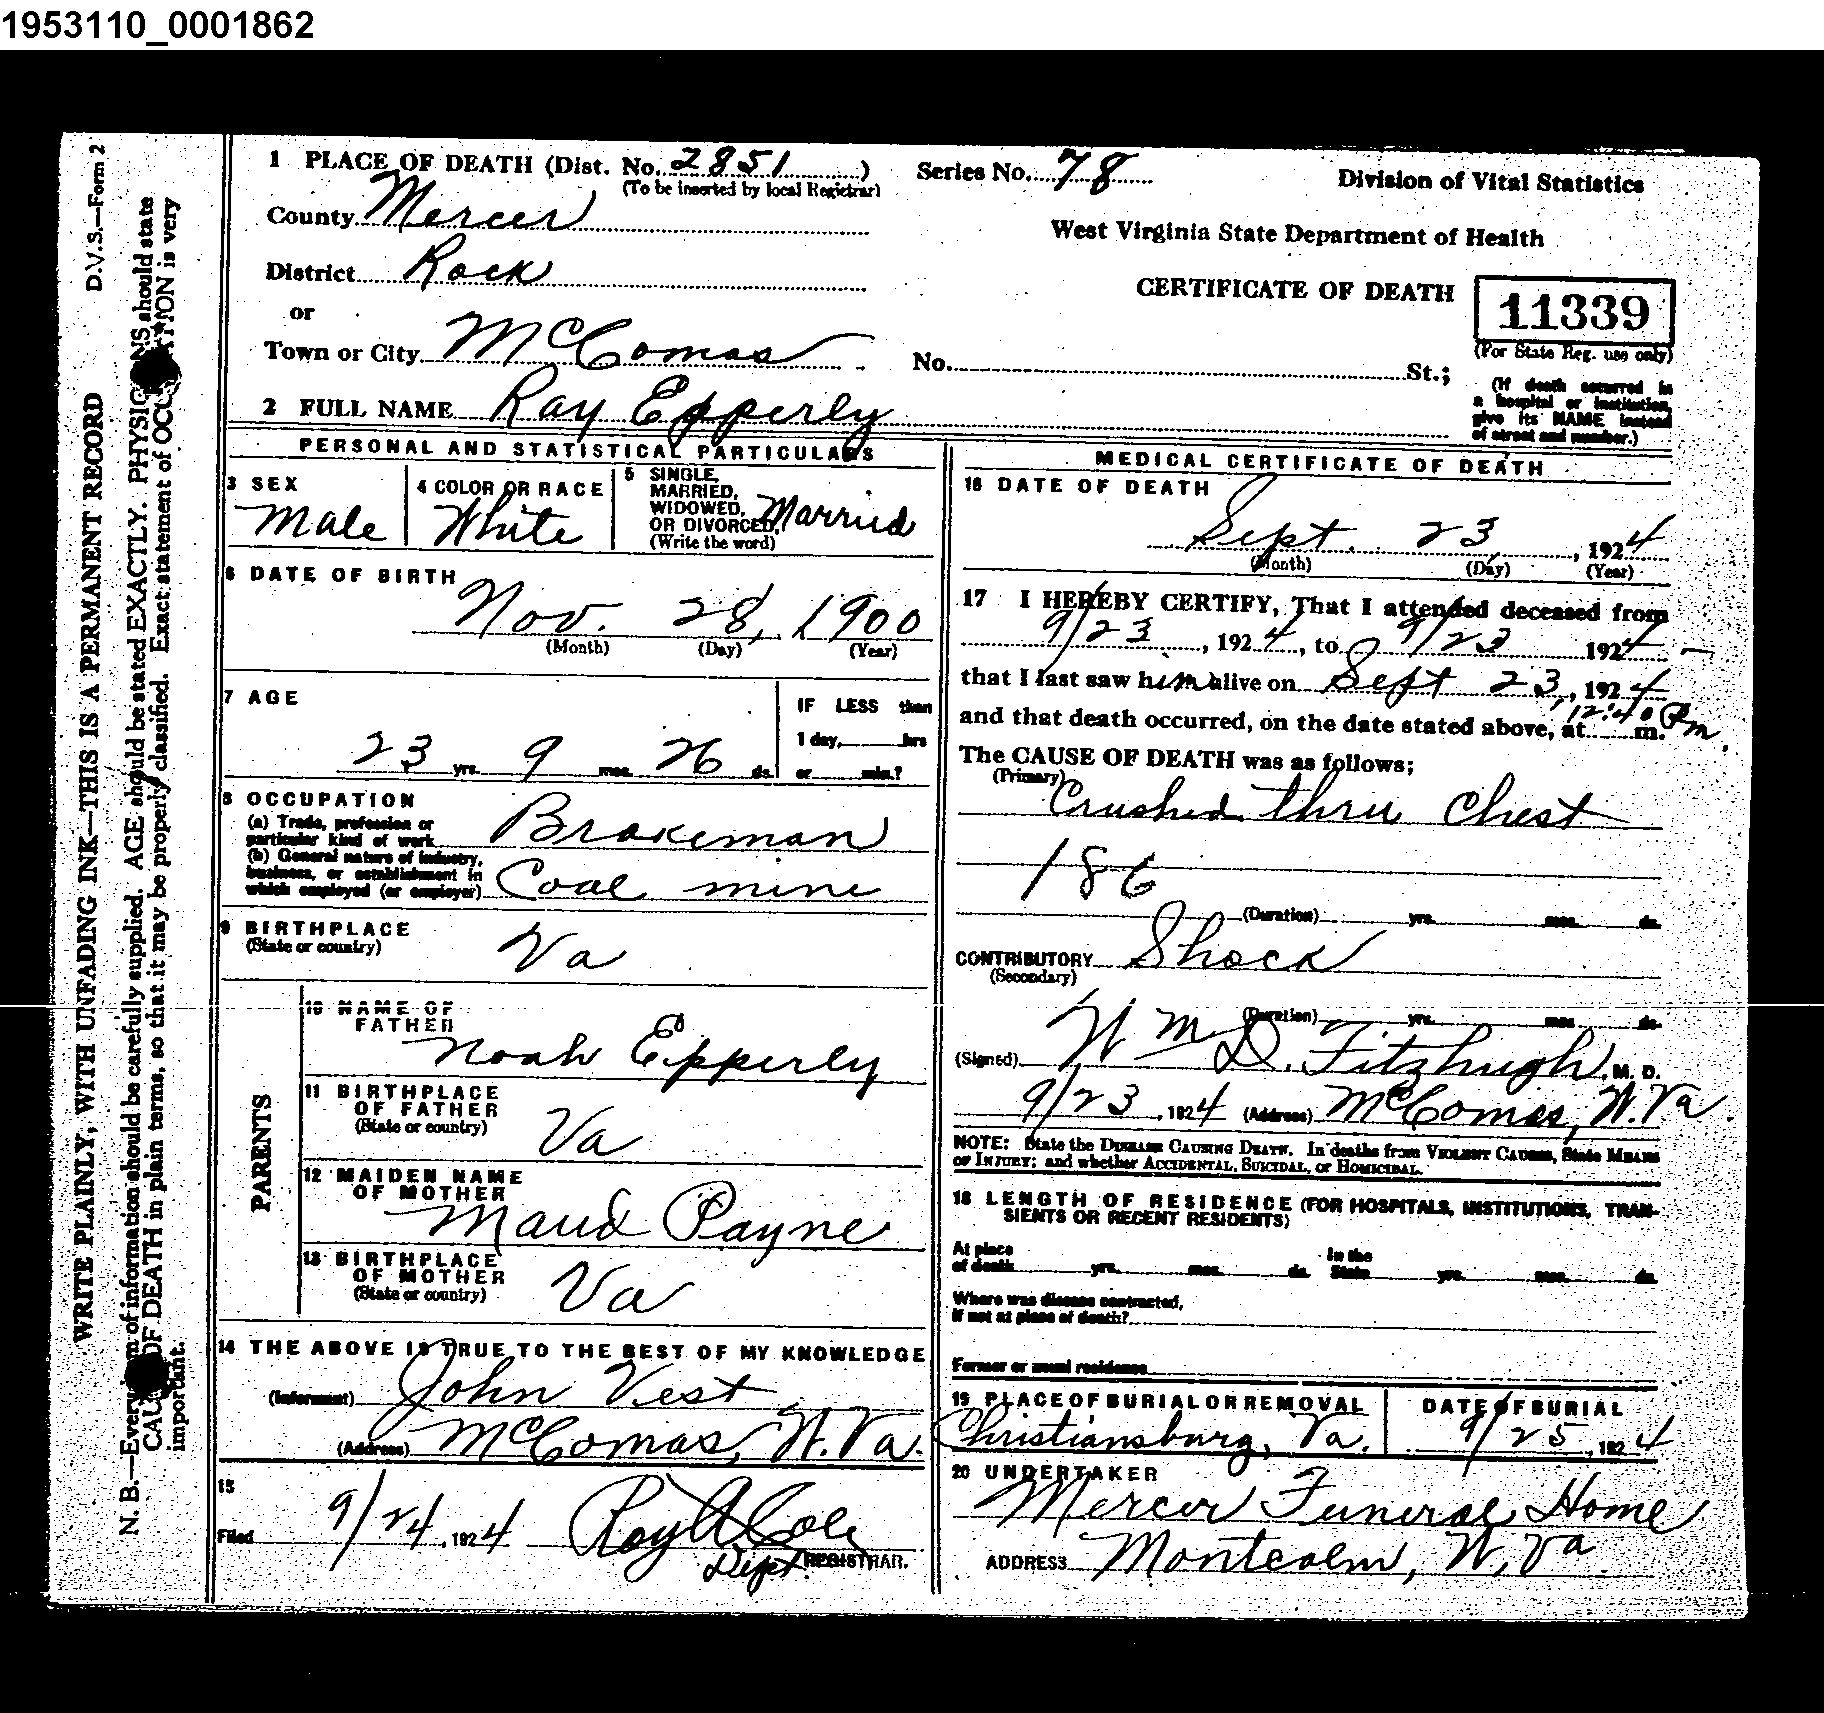 1953110_0001862
D.V.S.—Form 2
WRITE PLAINLY, WITH UNFADING INK—THIS IS A PERMANENT RECORD
N. B.—Every of information should be carefully supplied. AGE should be stated EXACTLY. PHYSICIANS should state
CAUSE OF DEATH in plain terms, so that it may be properly classified. Exact statement of OCCUPATION is very
important.
1 PLACE OF DEATH (Dist. No. 2851 )
(To be inserted by local Registrar)
Series No. 78
Division of Vital Statistics
County Mercer
West Virginia State Department of Health
District Rock
CERTIFICATE OF DEATH
11339
(For State Reg. use only)
or
Town or City McComas
No. St.;
(If death occurred in
a hospital or institution,
give its NAME instead
of street and number.)
2 FULL NAME Ray Epperly
PERSONAL AND STATISTICAL PARTICULARS
3 SEX
Male
4 COLOR OR RACE
White
5 SINGLE,
MARRIED,
WIDOWED,
OR DIVORCED, Married
(Write the word)
6 DATE OF BIRTH
Nov. 28, 1900
(Month) (Day) (Year)
7 AGE
23 yrs. 9 mos. 26 ds.
IF LESS than
1 day, hrs
or min.?
8 OCCUPATION
(a) Trade, profession or
particular kind of work Brakeman
(b) General nature of industry,
business, or establishment in
which employed (or employer) Coal mine
9 BIRTHPLACE
(State or country) Va
PARENTS
10 NAME OF
FATHER
Noah Epperly
11 BIRTHPLACE
OF FATHER
(State or country) Va
12 MAIDEN NAME
OF MOTHER
Maud Payne
13 BIRTHPLACE
OF MOTHER
(State or country) Va
14 THE ABOVE IS TRUE TO THE BEST OF MY KNOWLEDGE
(Informant) John Vest
(Address) McComas, W. Va.
15
Filed 9/24, 1924 Roy A Cole
Dept REGISTRAR.
MEDICAL CERTIFICATE OF DEATH
16 DATE OF DEATH
Sept. 23, 1924
(Month) (Day) (Year)
17 I HEREBY CERTIFY, That I attended deceased from
9/23, 1924, to 9/23 1924
that I last saw him alive on Sept 23, 1924
and that death occurred, on the date stated above, at 12:40 Pm.
The CAUSE OF DEATH was as follows;
(Primary) Crushed thru Chest
186
(Duration) yrs. mos. ds.
CONTRIBUTORY Shock
(Secondary)
(Duration) yrs. mos. ds.
(Signed) Wm D. Fitzhugh, M. D.
9/23, 1924 (Address) McComas, W. Va
NOTE: State the DISEASE CAUSING DEATH. In deaths from VIOLENT CAUSES, State MEANS
OF INJURY; and whether ACCIDENTAL, SUICIDAL, or HOMICIDAL.
18 LENGTH OF RESIDENCE (FOR HOSPITALS, INSTITUTIONS, TRAN-
SIENTS OR RECENT RESIDENTS)
At place
of death yrs. mos. ds.
In the
State yrs. mos. ds.
Where was disease contracted,
If not at place of death?
Former or usual residence
19 PLACE OF BURIAL OR REMOVAL
Christiansburg, Va.
DATE OF BURIAL
9/25, 1924
20 UNDERTAKER
Mercer Funeral Home
ADDRESS Montcalm, W, Va